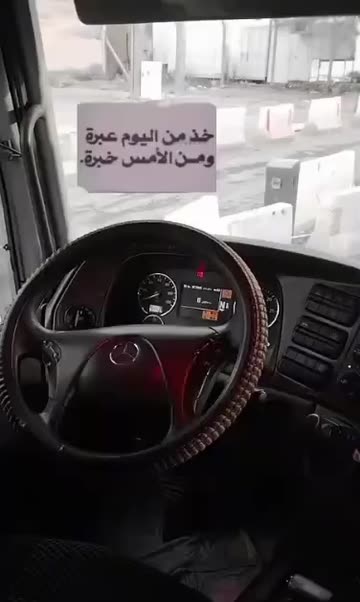 خذ من اليوم عبرة
ومن الأمس خبرة.